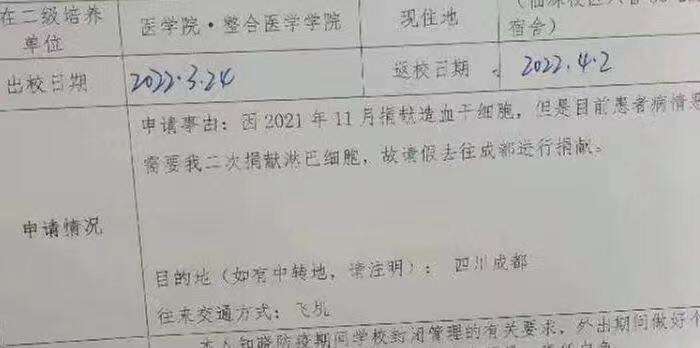 在二级培养
单位
医学院·整合医学学院
现住地
宿舍）
出校日期
2022.3.24
返校日期
2022.4.2
申请情况
申请事由：因2021年11月捐献造血干细胞，但是目前患者病情需
需要我二次捐献淋巴细胞，故请假去往成都进行捐献。
目的地（如有中转地，请注明）：四川成都
往来交通方式：飞机
本人知晓防疫期间学校封闭管理的有关要求，外出期间做好个